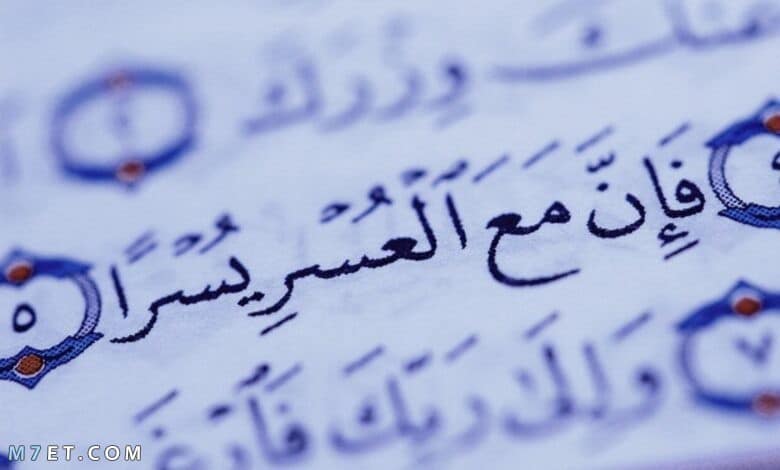 عَنكَ وِزْرَكَ ٢
فَإِنَّ مَعَ ٱلْعُسْرِ يُسْرًا ٥
٧ وَإِلَىٰ رَبِّكَ فَٱرْغَ
M7ET.COM